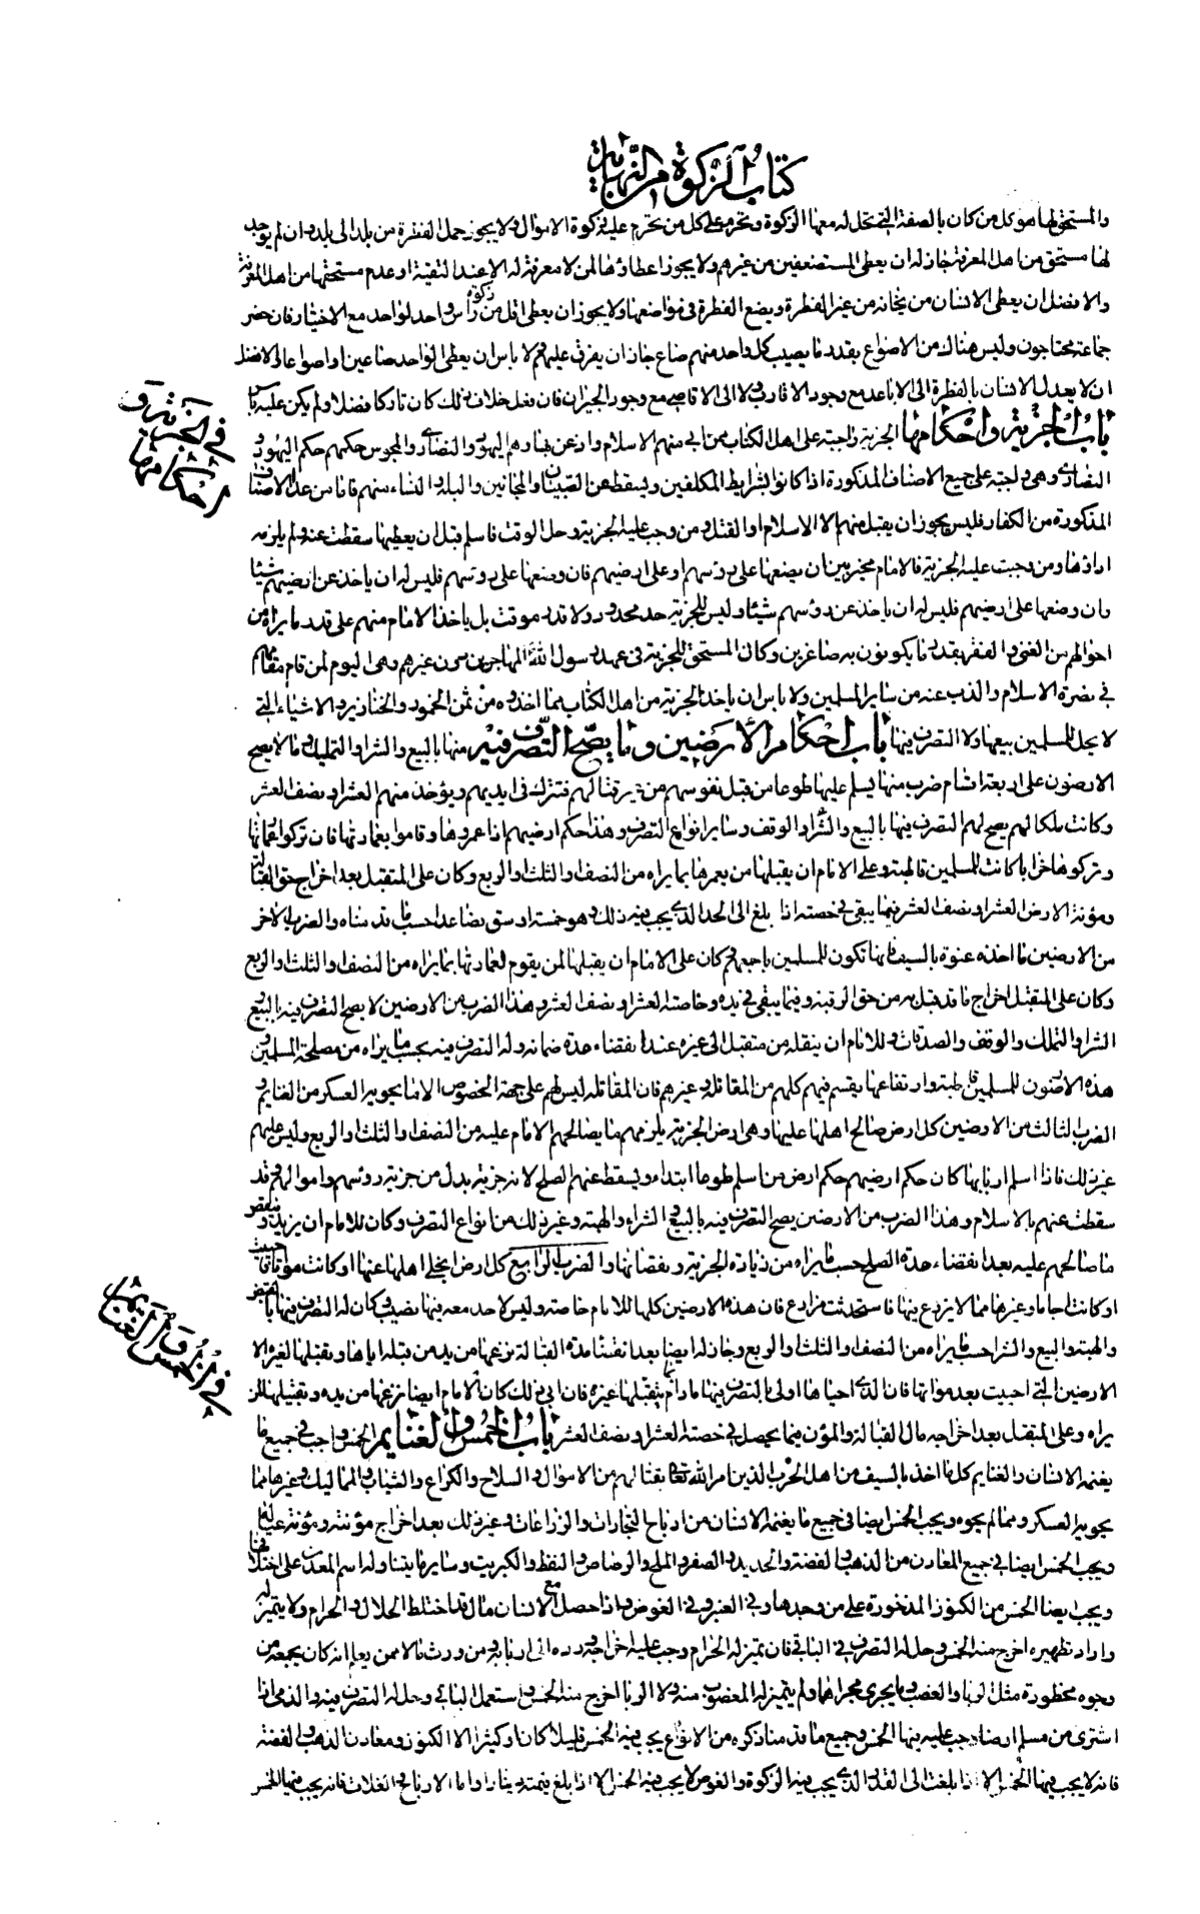 كتاب الزكوة من النهاية
والمستحق لها هو كل من كان بالصفة التي تحل له معها الزكوة وتحرم على كل من تحرم عليه زكوة الاموال ولا يجوز حمل الفطرة من بلد الى بلد وان لم يوجد
لها مستحق من اهل المعرفة جاز له ان يعطي المستضعفين من غيرهم ولا يجوز اعطاؤها لمن لا معرفة له الا عند التقية او عدم مستحقها من اهل المعرفة
والافضل ان يعطي الانسان من يخافه من غير الفطرة ويضع الفطرة في مواضعها ولا يجوز ان يعطي اقل من زكوة رأس واحد لواحد مع الاختيار فان حضر
جماعة محتاجون وليس هناك من الاصواع بقدر ما يصيب كل واحد منهم صاع جاز ان يفرق عليهم ولا باس ان يعطي الواحد صاعين او اصواعا والافضل
ان لا يعدل الانسان بالفطرة الى الاباعد مع وجود الاقارب ولا الى الاقاصي مع وجود الجيران فان فعل خلاف ذلك كان تاركا فضلا ولم يكن عليه باس
باب الجزية واحكامها الجزية واجبة على اهل الكتاب ممن ابى منهم الاسلام واذعن بها وهم اليهود والنصارى والمجوس حكمهم حكم اليهود و
النصارى وهي واجبة على جميع الاصناف المذكورة اذا كانوا بشرايط المكلفين ويسقط عن الصبيان والمجانين والبله والنساء منهم فاما من عدا الاصناف
المذكورة من الكفار فليس يجوز ان يقبل منهم الا الاسلام او القتل ومن وجب عليه الجزية وحل الوقت فاسلم قبل ان يعطيها سقطت عنه ولم يلزمه
اداؤها ومن وجبت عليه الجزية فالامام مخير بين ان يضعها على رؤسهم او على ارضيهم فان وضعها على رؤسهم فليس له ان ياخذ عن ارضيهم شيئا
وان وضعها على ارضيهم فليس له ان ياخذ عن رؤسهم شيئا وليس للجزية حد محدود ولا قدر موقت بل ياخذ الامام منهم على قدر ما يراه من
احوالهم من الغنى والفقر بقدر ما يكونون به صاغرين وكان المستحق للجزية في عهد رسول الله المهاجرين دون غيرهم وهي اليوم لمن قام مقامهم
في نصرة الاسلام والذب عنه من ساير المسلمين ولا باس ان ياخذ الجزية من اهل الكتاب مما اخذوه من ثمن الخمور والخنازير والاشياء التي
لا يحل للمسلمين بيعها ولا التصرف فيها باب احكام الارضين وما يصح التصرف فيه منها بالبيع والشراء والتمليك وما لا يصح
الارضون على اربعة اقسام ضرب منها يسلم عليها طوعا من قبل نفوسهم من غير قتال فتترك في ايديهم ويؤخذ منهم العشر او نصف العشر
وكانت ملكا لهم يصح لهم التصرف فيها بالبيع والشراء والوقف وساير انواع التصرف وهذا حكم ارضيهم اذا عمروها وقاموا بعمارتها فان تركوا عمارتها
وتركوها خرابا كانت للمسلمين قاطبة وعلى الامام ان يقبلها من يعمرها بما يراه من النصف والثلث والربع وكان على المتقبل بعد اخراج حق القبالة
ومؤنة الارض العشر او نصف العشر فيما يبقى في حصته اذا بلغ الى الحد الذي يجب فيه ذلك وهو خمسة اوسق فصاعدا حسب ما قدمناه والضرب الاخر
من الارضين ما اخذه عنوة بالسيف فانها تكون للمسلمين باجمعهم وكان على الامام ان يقبلها لمن يقوم بعمارتها بما يراه من النصف والثلث والربع
وكان على المتقبل اخراج ما قد قبل به من حق الرقبة وفيما يبقى في يده وخاصته العشر او نصف العشر وهذا الضرب من الارضين لا يصح التصرف فيه بالبيع و
الشراء والتملك والوقف والصدقات وللامام ان ينقله من متقبل الى غيره عند انقضاء مدة ضمانه وله التصرف فيه بحسب ما يراه من مصلحة المسلمين و
هذه الارضون للمسلمين قاطبة وارتفاعها يقسم فيهم كلهم من المقاتلة وغيرهم فان المقاتلة ليس لهم على جهة الخصوص الا ما يحويه العسكر من الغنايم و
الضرب الثالث من الارضين كل ارض صالح اهلها عليها وهي ارض الجزية يلزمهم ما يصالحهم الامام عليه من النصف والثلث والربع وليس عليهم
غير ذلك فاذا اسلم اربابها كان حكم ارضيهم حكم ارض من اسلم طوعا ابتداء ويسقط عنهم الصلح لانه جزية بدل من جزية رؤسهم واموالهم وقد
سقطت عنهم بالاسلام وهذا الضرب من الارضين يصح التصرف فيه بالبيع والشراء والهبة وغير ذلك من انواع التصرف وكان للامام ان يزيد وينقص
ما صالحهم عليه بعد انقضاء مدة الصلح حسب ما يراه من زيادة الجزية ونقصانها والضرب الرابع كل ارض انجلى اهلها عنها او كانت مواتا فاحييت
او كانت اجاما وغيرها مما لا يزرع فيها فاستحدثت مزارع فان هذه الارضين كلها للامام خاصة وليس لاحد معه فيها نصيب وكان له التصرف فيها بالقبض
والهبة والبيع والشراء حسب ما يراه من النصف والثلث والربع وجاز له ايضا بعد انقضاء مدة القبالة نزعها من يد من قبله اياها وتقبيلها لغيره الا
الارضين التي احييت بعد مواتها فان الذي احياها اولى بالتصرف فيها ما دام يتقبلها غيره فان ابى ذلك كان للامام ايضا نزعها من يده وتقبيلها لمن
يراه وعلى المتقبل بعد اخراجه مال القبالة والمؤن فيما يحصل في حصته العشر او نصف العشر باب الخمس والغنايم الخمس واجب في جميع ما
يغنمه الانسان والغنايم كل ما اخذ بالسيف من اهل الحرب الذين امر الله تعالى بقتالهم من الاموال والسلاح والكراع والثياب والمماليك وغيرها مما
يحويه العسكر ومما لم يحوه ويجب الخمس ايضا في جميع ما يغنمه الانسان من ارباح التجارات والزراعات وغير ذلك بعد اخراج مؤنته ومؤنة عياله
ويجب الخمس ايضا في جميع المعادن من الذهب والفضة والحديد والصفر والملح والرصاص والنفط والكبريت وساير ما يتناوله اسم المعدن على اختلافها
ويجب ايضا الخمس من الكنوز المذخورة على من وجدها وفي العنبر وفي الغوص واذا حصل مع الانسان مال قد اختلط الحلال والحرام ولا يتميز له
واراد تطهيره اخرج منه الخمس وحل له التصرف في الباقي فان تميز له الحرام وجب عليه اخراجه ورده الى اربابه ومن ورث مالا ممن يعلم انه كان يجمعه من
وجوه محظورة مثل الربا والغصب وما يجري مجراها ولم يتميز له المغصوب منه ولا الربا اخرج منه الخمس واستعمل الباقي وحل له التصرف فيه والذمي اذا
اشترى من مسلم ارضا وجب عليه فيها الخمس وجميع ما قدمنا ذكره من الانواع يجب فيه الخمس قليلا كان او كثيرا الا الكنوز ومعادن الذهب والفضة
فانه لا يجب فيها الخمس الا اذا بلغت الى القدر الذي يجب فيه الزكوة والغوص لا يجب فيه الخمس الا اذا بلغ قيمته دينارا واما الارباح والغلات فانه يجب فيها الخمس
في الجزية و
احكامها
في الخمس والغنايم